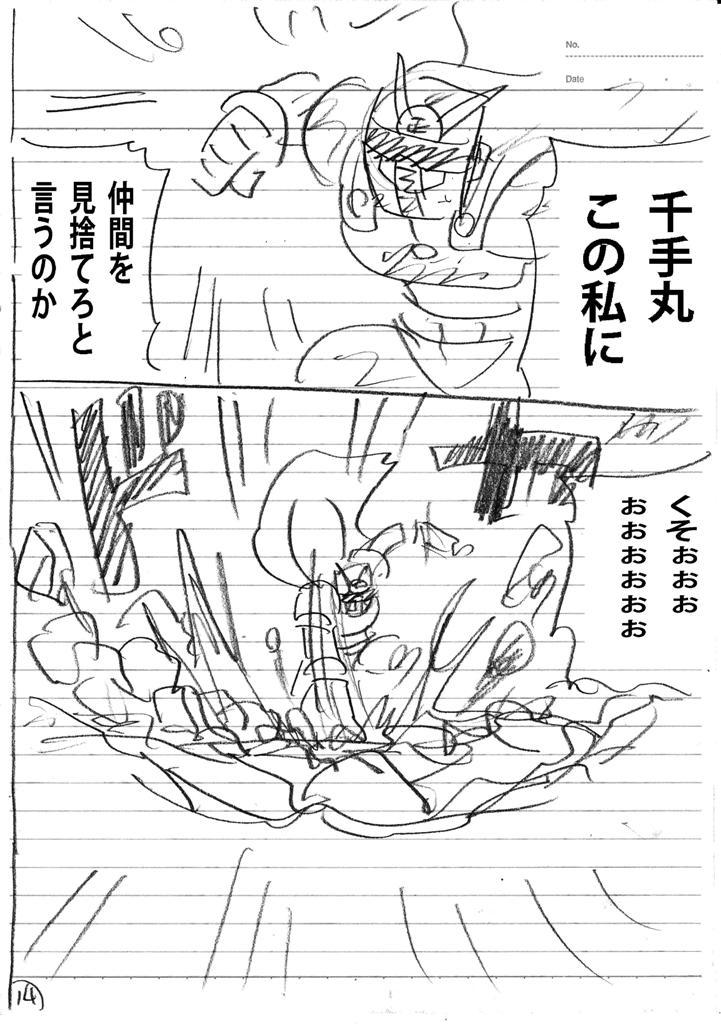 No.
Date
千手丸
この私に
仲間を
見捨てろと
言うのか
くそぉぉぉ
ぉぉぉぉぉぉ
14